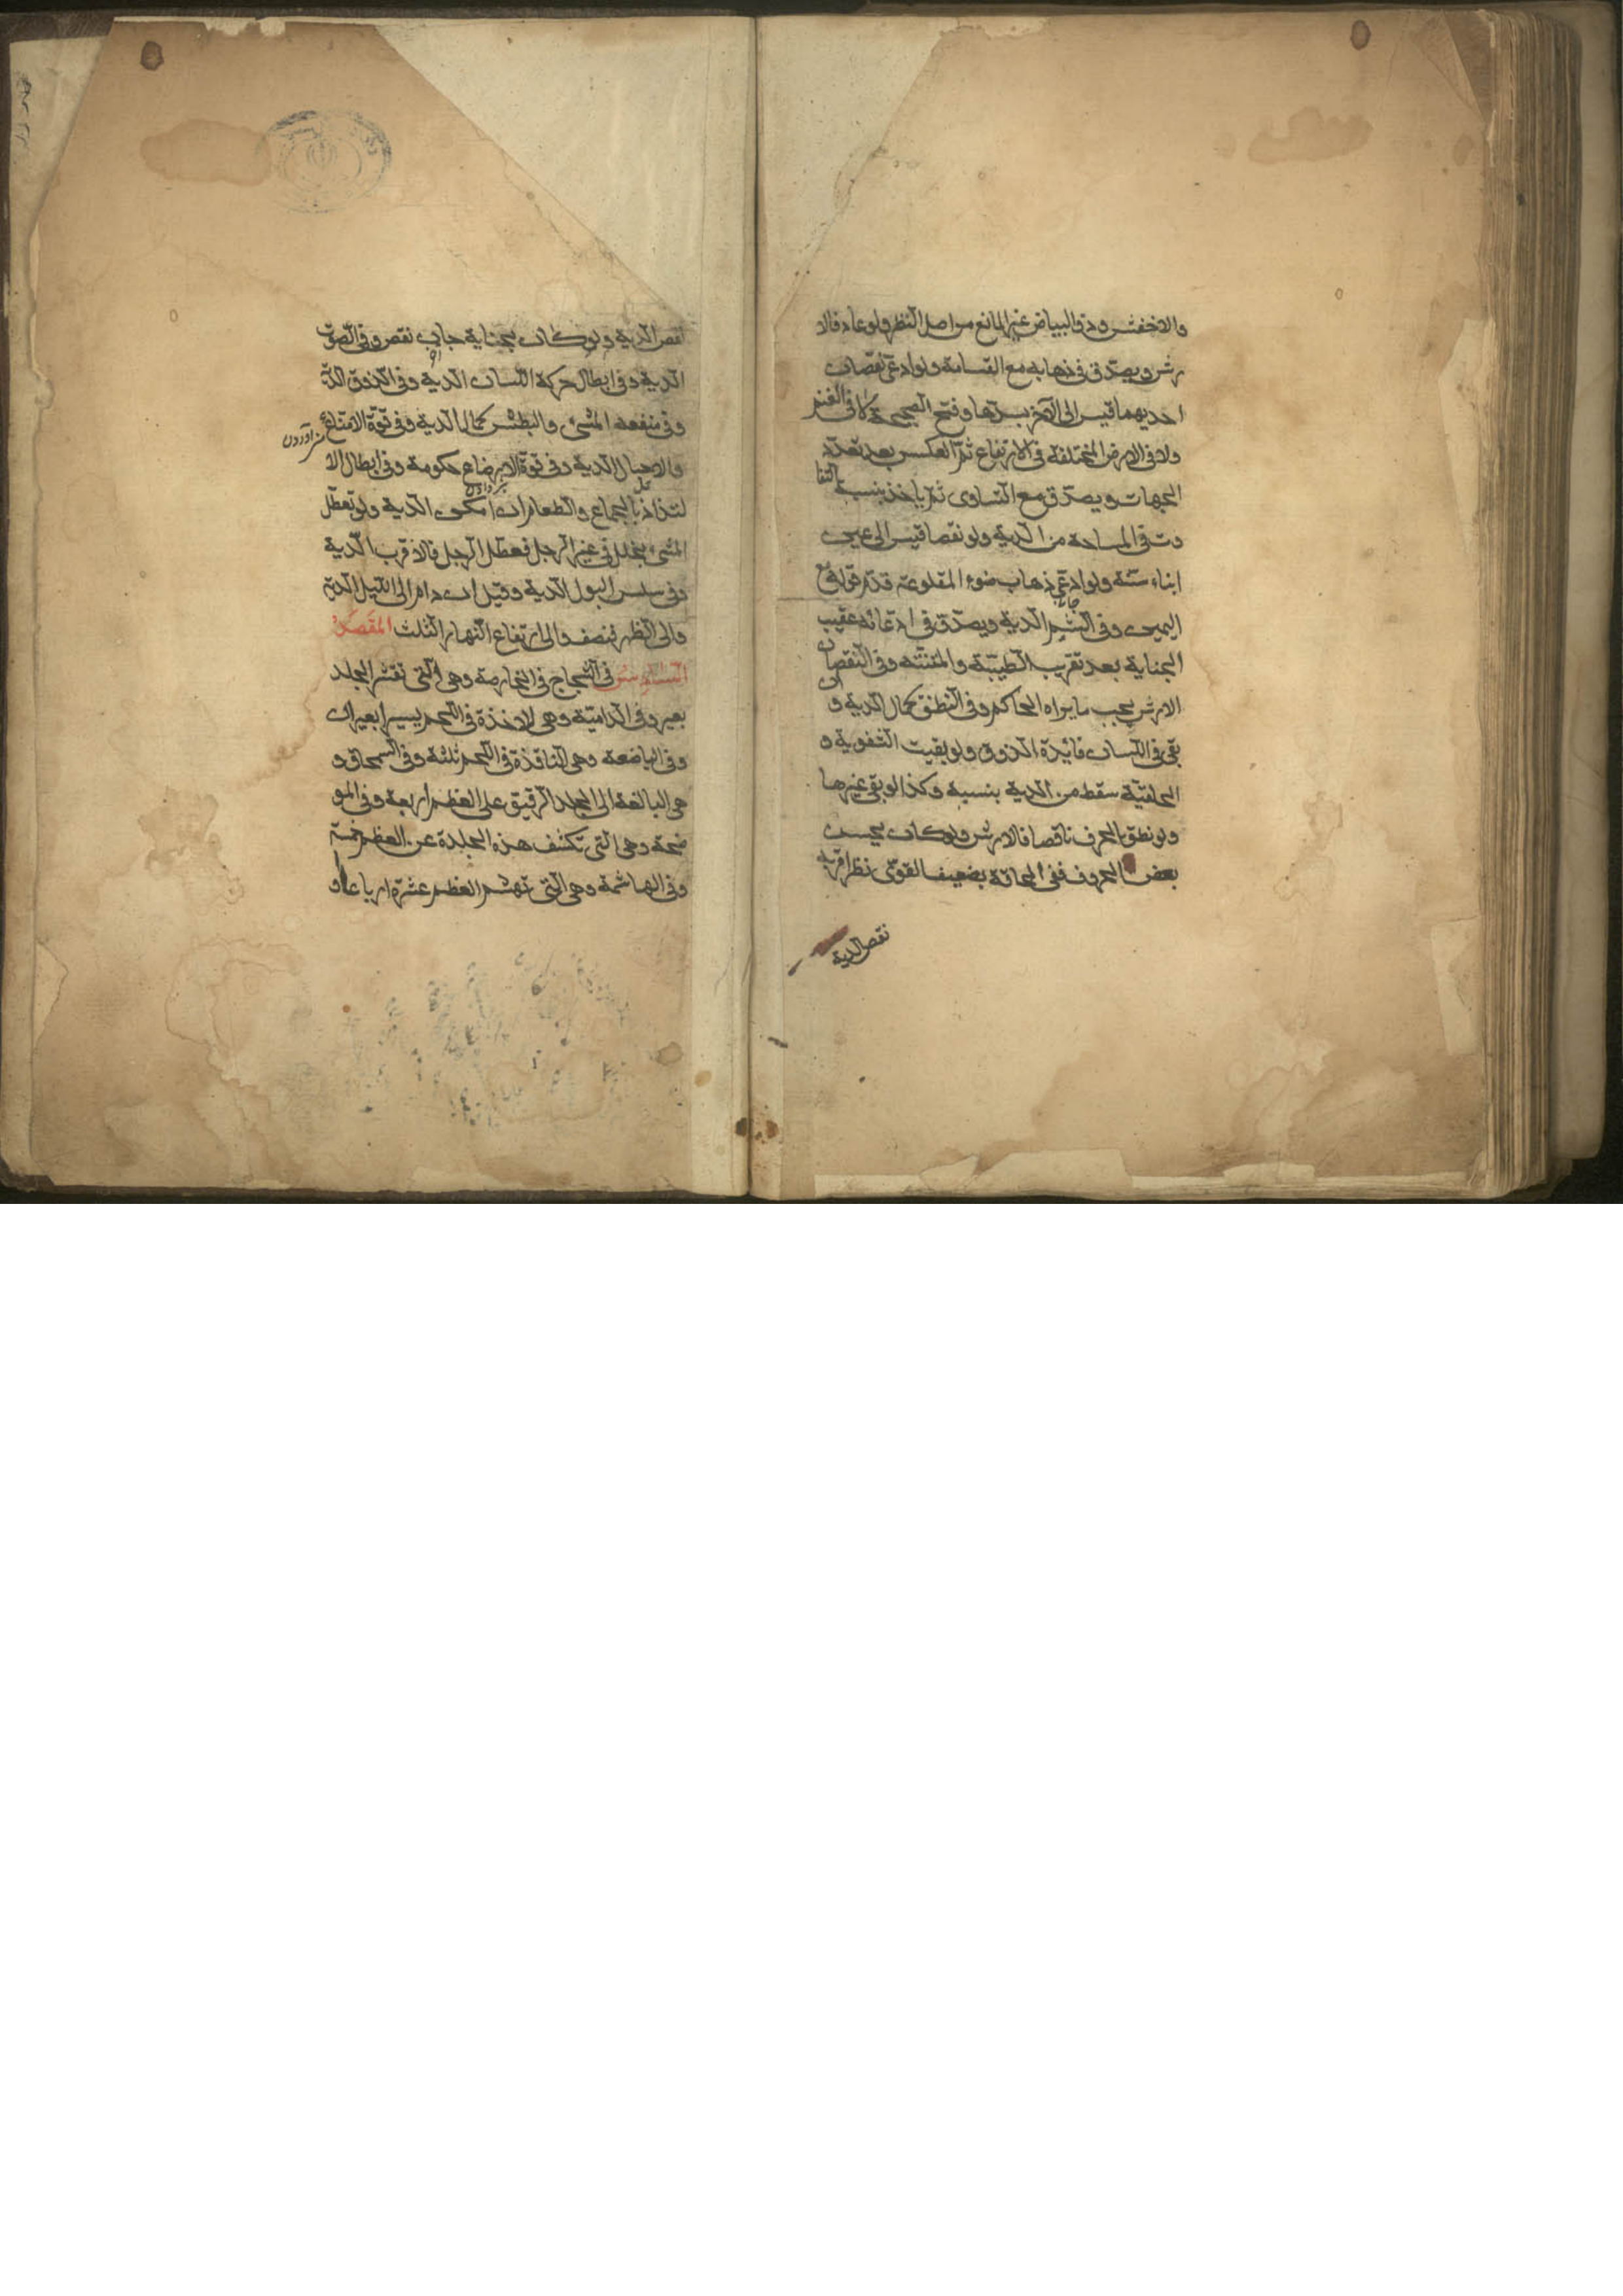 والاخفش وذو البياض غير المانع من اصل النظر ولو عاد فالا
رش ويصدق في ذهابه مع القسامة ولو ادعى نقصان
احديهما قيس الى الاخرى بسدها وفتح الصحيحة لا في الغيم
ولا في الارض المختلفة في الارتفاع ثم العكس بعد تعدد
الجهات ويصدق مع التساوى ثم ياخذ بنسبة التفا
وت في المساحة من الدية ولو نقصا قيس الى عين
ابناء سنه ولو ادعى ذهاب ضوء المقلوعة قدم قوله مع
اليمين وفى الشم الدية ويصدق في ادعائه عقيب
الجناية بعد تقريب الطيبة والمنتنة وفى النقصان
الارش يجب ما يراه الحاكم وفى النطق كمال الدية و ان
بقى فى اللسان فائدة الذوق ولو بقيت الشفوية و
الحلقية سقط من الدية بنسبة وكذا لو بقى غيرها
ولو نطق بالحرف ناقصا فالارش ولو كان يحسن
بعض الحروف ففى الحاقه بضعيف القوى نظر اقربه
نقص الدية
نقص الدية ولو كان بجناية جان نقص وفى الصوت
الدية وفى ابطال حركة اللسان الدية وفى الذوق الدية
وفى منفعه المشى والبطش كمال الدية وفى قوة الامناء
والاحبال الدية وفى قوة الارضاع حكومة وفى ابطال الا
لتذاذ بالجماع والطعام ان امكن الدية ولو تعطل
المشى بخلل فى غير الرجل فعطل الرجل فالاقرب الدية
وفى سلس البول الدية وقيل ان دام الى الليل الدية
والى الظهر فنصف والى ارتفاع النهار الثلث المقصد
السادس فى الشجاج فى الخارصة وهى التى تقشر الجلد
بعير وفى الدامية وهى الاخذة فى اللحم يسيرا بعيران
وفى الباضعة وهى النافذة فى اللحم ثلثة وفى السمحاق و
هى البالغة الى الجلد الرقيق على العظم اربعة وفى المو
ضحة وهى التى تكشف هذه الجلدة عن العظم خمسة
وفى الهاشمة وهى التى تهشم العظم عشرة ارباعا او